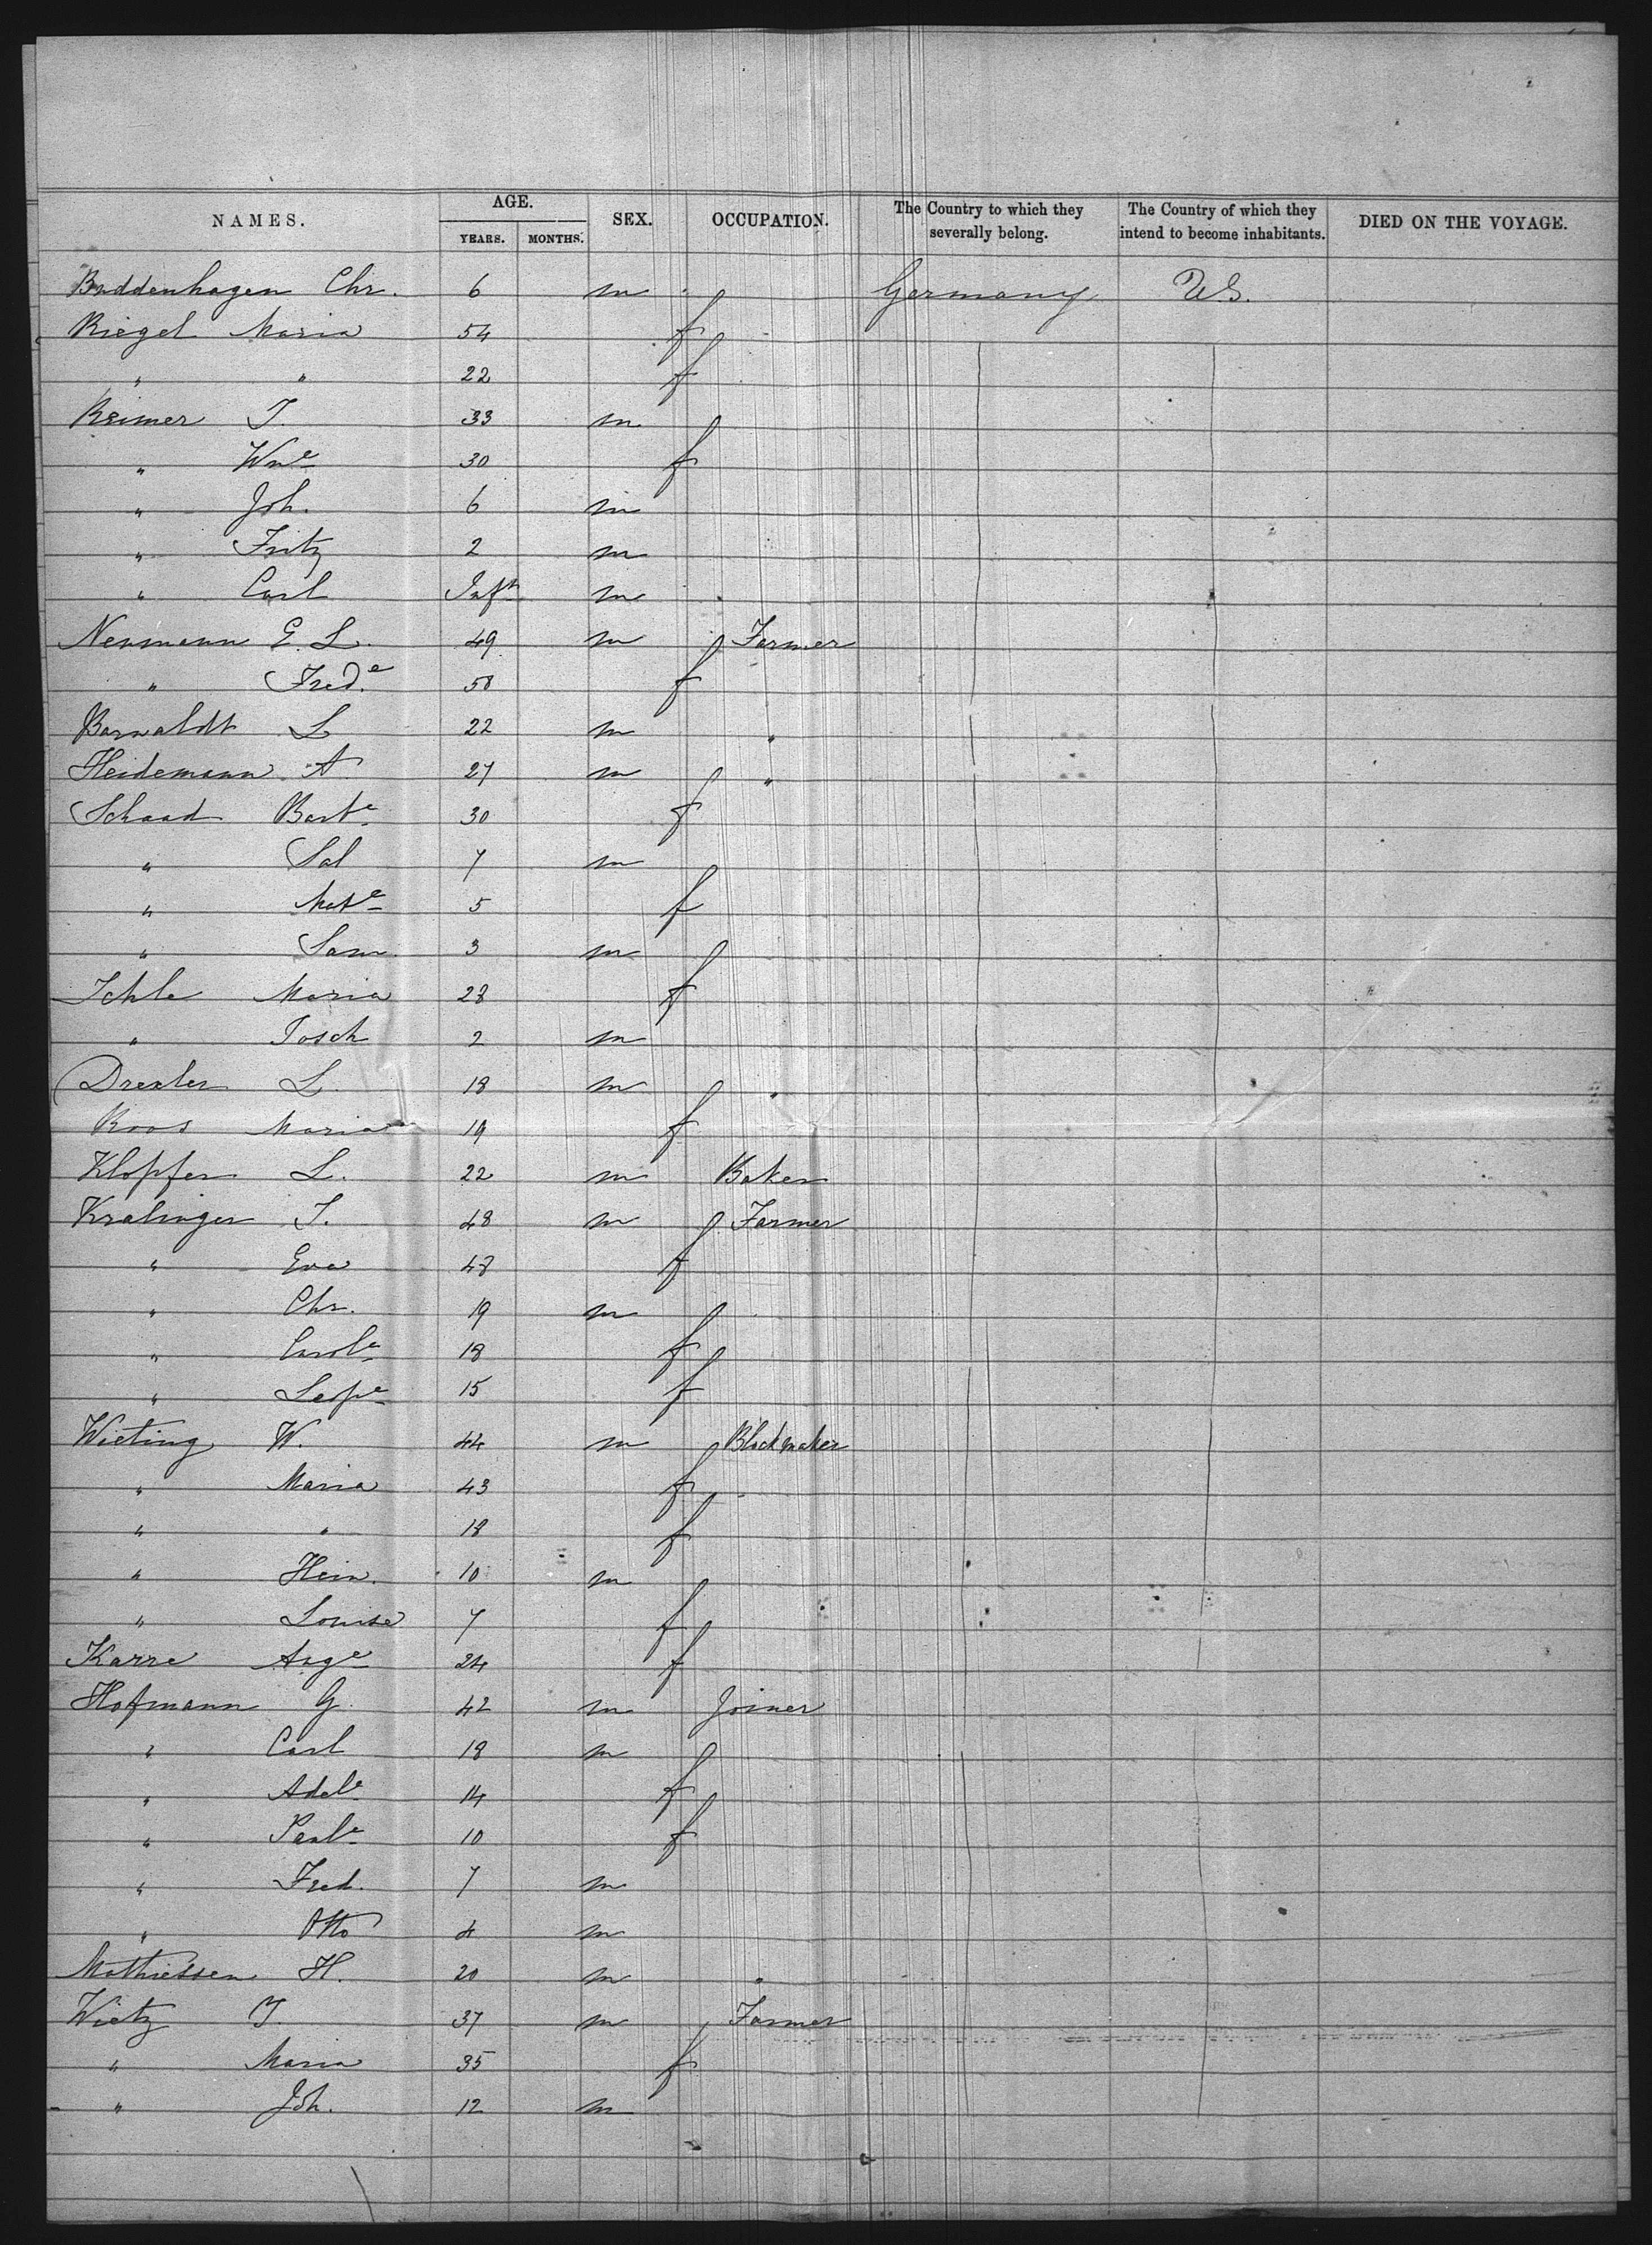 NAMES. AGE. YEARS. MONTHS. SEX. OCCUPATION. The Country to which they severally belong. The Country of which they intend to become inhabitants. DIED ON THE VOYAGE.
Buddenhagen Chr. 6 m Germany U.S.
Riegel Maria 54 f
" " 22 f
Reimer J. 33 m
" Wme 30 f
" Joh. 6 m
" Fritz 2 m
" Carl Inft m
Neumann E. L. 49 m Farmer
" Fred.e 58 f
Barwaldt L 22 m "
Heidemann A. 27 m "
Schaad Barbe 30 f
" Sal 7 m
" 5 f
" Sam 3 m
Ichle Maria 28 f
" Josch 2 m
Drexler L. 18 m "
Roos Maria 19 f
Klopfer L. 22 m Baker
Kralinger J. 48 m Farmer
" Eva 48 f
" Chr. 19 m
" Carole 18 f
" Leope 15 f
Wieting W. 44 m Blockmaker
" Maria 43 f
" " 18 f
" Hein. 10 m
" Louise 7 f
Karre Auge 24 f
Hofmann G. 42 m Joiner
" Carl 18 m
" Adele 14 f
" Paule 10 f
" Fred. 7 m
" Otto 4 m
Mathiessen H. 20 m "
Wietz J. 37 m Farmer
" Maria 35 f
" Joh. 12 m